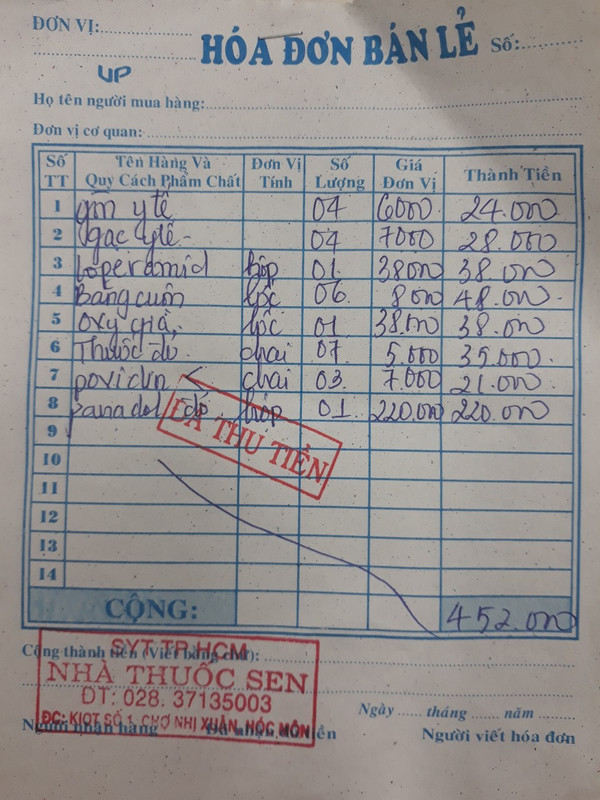 ĐƠN VỊ:
HÓA ĐƠN BÁN LẺ Số:
VP
Họ tên người mua hàng:
Đơn vị cơ quan:
Số TT Tên Hàng Và Quy Cách Phẩm Chất Đơn Vị Tính Số Lượng Giá Đơn Vị Thành Tiền
1 y tế 04 6000 24.000
2 gạc y tế - 04 7000 28.000
3 Loperamid hộp 01 38000 38.000
4 Băng cuộn lốc 06 8000 48.000
5 Oxy già lốc 01 38.000 38.000
6 Thuốc đỏ chai 07 5.000 35.000
7 povidin chai 03 7.000 21.000
8 panadol hộp 01 220.000 220.000
ĐÃ THU TIỀN
9
10
11
12
13
14
CỘNG: 452.000
Cộng thành tiền (Viết bằng chữ):
SYT.TP.HCM
NHÀ THUỐC SEN
ĐT: 028. 37135003
ĐC: KIOT SỐ 1, CHỢ NHỊ XUÂN, HÓC MÔN
Ngày ...... tháng ...... năm
Người nhận hàng Đã nhận đủ tiền Người viết hóa đơn